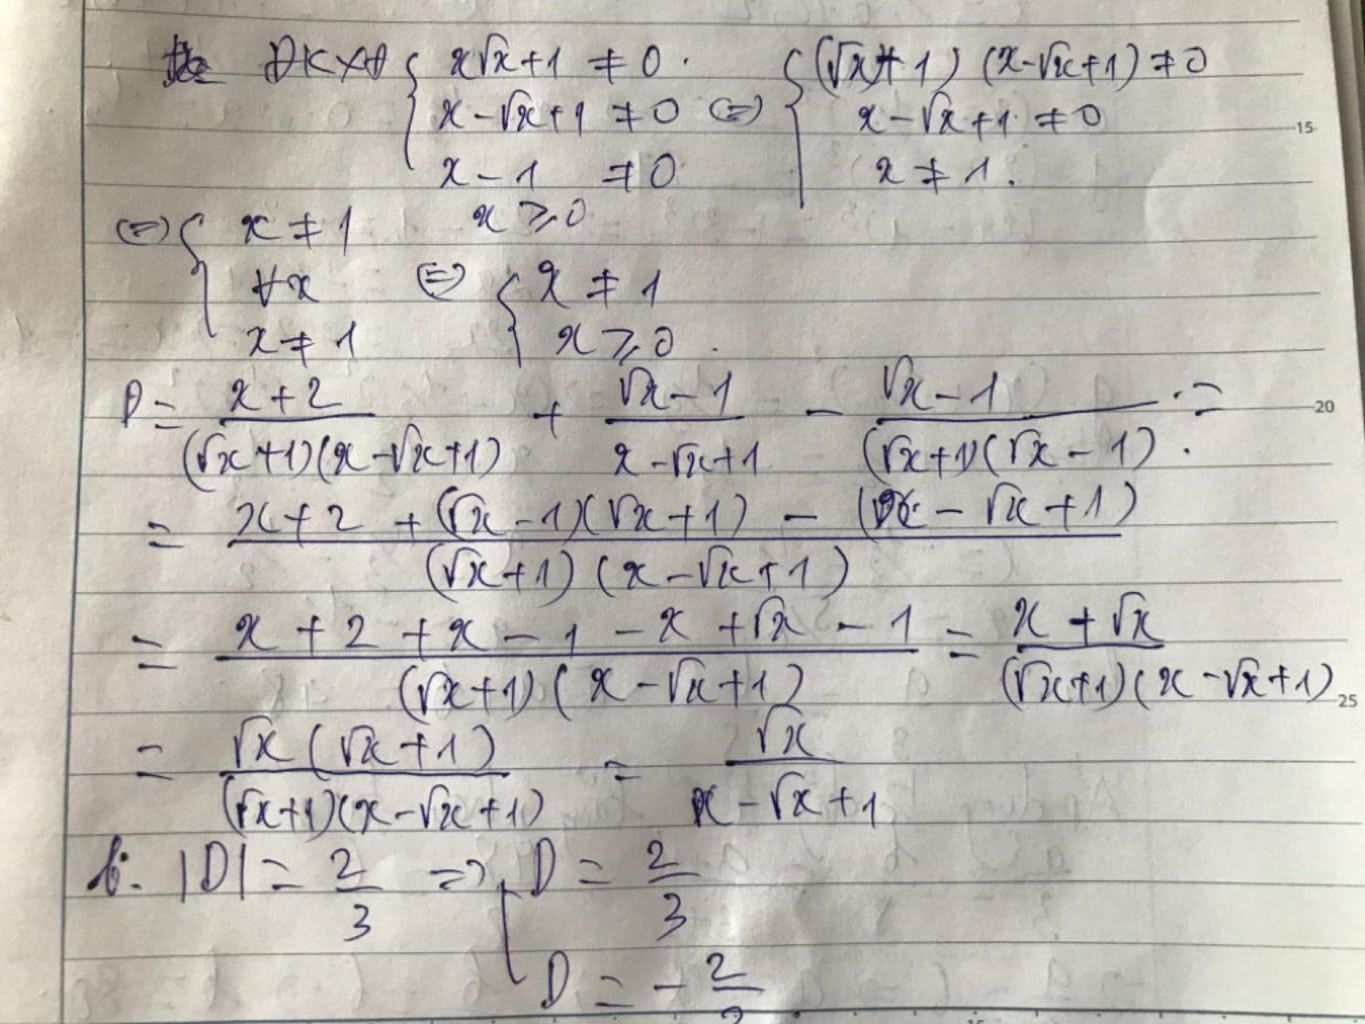 ĐKXĐ { x√x+1 ≠ 0 . { (√x+1) (x-√x+1) ≠ 0
x-√x+1 ≠ 0 (=) x-√x+1 ≠ 0
15
x-1 ≠ 0 x ≠ 1.
x ⩾ 0
(=) { x ≠ 1
∀x (=) { x ≠ 1
x ≠ 1 x ⩾ 0 .
D = (x+2)/((√x+1)(x-√x+1)) + (√x-1)/(x-√x+1) - (√x-1)/((√x+1)(√x-1)) . =
20
= (x+2 + (√x-1)(√x+1) - (x-√x+1))/((√x+1)(x-√x+1))
= (x+2+x-1-x+√x-1)/((√x+1)(x-√x+1)) = (x+√x)/((√x+1)(x-√x+1))
25
= (√x(√x+1))/((√x+1)(x-√x+1)) = √x/(x-√x+1)
b. |D| = 2/3 => [ D = 2/3
D = - 2/